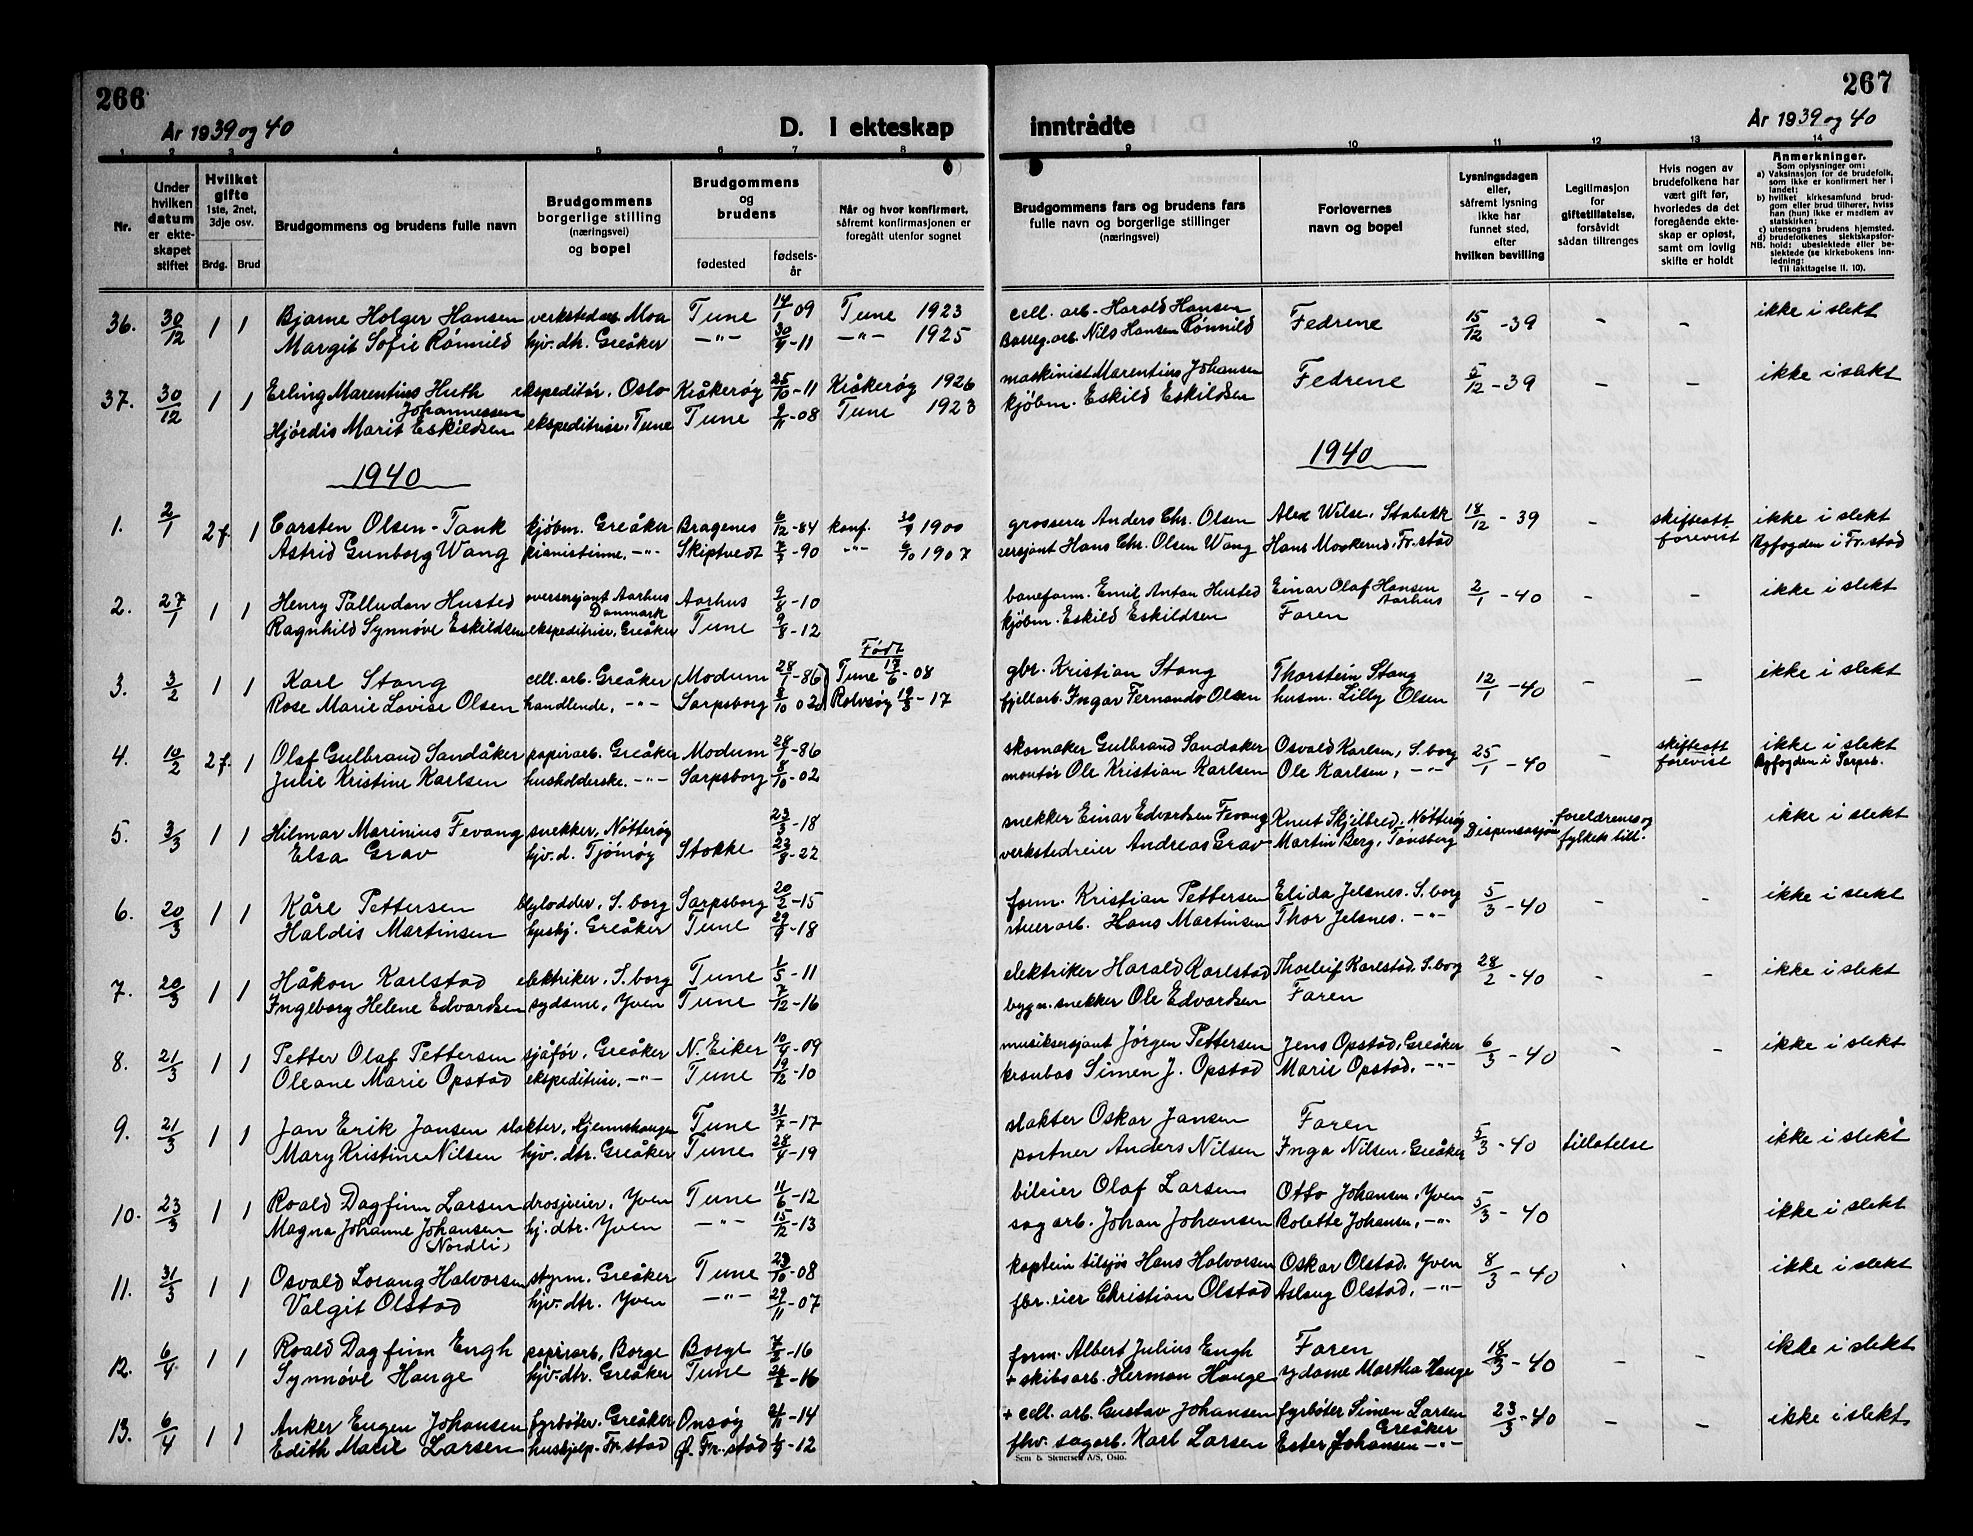 266
267
År 1939 og 40
D. I ekteskap
inntrådte
År 1939 og 40
1 2 3 4 5 6 7 8 9 10 11 12 13 14
Nr.
Under hvilken datum er ekteskapet stiftet
Hvilket gifte 1ste, 2net, 3dje osv.
Brdg. Brud
Brudgommens og brudens fulle navn
Brudgommens borgerlige stilling (næringsvei) og bopel
Brudgommens og brudens
fødested
fødselsår
Når og hvor konfirmert, såfremt konfirmasjonen er foregått utenfor sognet
Brudgommens fars og brudens fars fulle navn og borgerlige stillinger (næringsvei)
Forlovernes navn og bopel
Lysningsdagen eller, såfremt lysning ikke har funnet sted, efter hvilken bevilling
Legitimasjon for giftetillatelse, forsåvidt sådan tiltrenges
Hvis nogen av brudefolkene har vært gift før, hvorledes da det foregående ekteskap er opløst, samt om lovlig skifte er holdt
Anmerkninger.
Som oplysninger om:
a) Vaksinasjon for de brudefolk, som ikke er konfirmert her i landet;
b) hvilket kirkesamfund brudgom eller brud tilhører, hviss han (hun) ikke er medlem av statskirken;
c) utensogns brudens hjemsted.
d) brudefolkenes slektskapsforhold: ubeslektede eller beslektede (se kirkebokens innledning:
NB. Til iakttagelse II. 10).
36. 30/12 1 1 Bjarne Holger Hansen verkstedarb Moa Tune 14/1 09 Tune 1923 cell. arb. Harald Hansen Fedrene 15/12 -39 - - ikke i slekt
Margit Sofie Rönnild hjv. dtr. Greåker -"- 30/9 -11 -"- 1925 Borreg. arb. Nils Hansen Rönnild
37. 30/12 1 1 Erling Marentius Huth Johannessen ekspeditör, Oslo Kråkerøy 25/10 -11 Kråkerøy 1926 maskinist Marentius Johansen Fedrene 5/12 -39 - - ikke i slekt
Hjördis Marit Eskildsen ekspeditrise, Tune Tune 9/11 -08 Tune 1923 kjöbm. Eskild Eskildsen
1940
1940
1. 2/1 2f. 1 Carsten Olsen-Tank kjöbm. Greåker Bragenes 6/12 -84 konf. 30/9 1900 grosserer Anders Chr. Olsen Alex Wilse, Stabekk 18/12 - 39 - skifteatt forevist ikke i slekt
Astrid Gunborg Wang pianistinne, -"- Skiptvedt 7/7 -90 -"- 6/10 1907 sersjant Hans Chr. Olsen Wang Hans Moskerud, Fr.stad Byfogden i Fr.stad
2. 27/1 1 1 Henry Palludan Husted oversersjant Aarhus Danmark Aarhus 9/8 -10 baneform. Emil Anton Husted Einar Olaf Hansen Aarhus 2/1 -40 - - ikke i slekt
Ragnhild Synnöve Eskildsen ekspeditrise, Greåker Tune 9/8 -12 kjöbm. Eskild Eskildsen Faren
Født
3. 3/2 1 1 Karl Stang cell. arb. Greåker Modum 28/1 -86 Tune 17/6 -08 gbr. Kristian Stang Thorstein Stang 12/1 -40 - - ikke i slekt
Rose Marie Lovise Olsen handlende, -"- Sarpsborg 8/10 02 Rolvsøy 19/3 -17 fjellarb. Ingar Fernando Olsen husm. Lilly Olsen
4. 10/2 2f. 1 Olaf Gulbrand Sandåker papirarb. Greåker Modum 28/1 -86 skomaker Gulbrand Sandaker Osvald Karlsen, S.borg 25/1 -40 - skifteatt forevist ikke i slekt
Julie Kristine Karlsen husholderske. -"- Sarpsborg 8/10 -02 montör Ole Kristian Karlsen Ole Karlsen, -"- Byfogden i Sarpsb.
5. 3/3 1 1 Hilmar Marinius Fevang snekker, Nötteröy 23/3 -18 snekker Einar Edvardsen Fevang Knut Skjelbred, Nötteröy Dispensasjon foreldrenes og fylkets till. ikke i slekt
Elsa Grav hjv. d. Tjömöy Stokke 23/8 -22 verkstedeier Andreas Grav Martin Berg, Tönsberg
6. 20/3 1 1 Kåre Pettersen blylodder, S.borg Sarpsborg 20/2 -15 form. Kristian Pettersen Elida Jelsnes. S.borg 5/3 -40 - - ikke i slekt
Haldis Martinsen hushj. Greåker Tune 29/9 -18 stuerarb. Hans Martinsen Thor Jelsnes. -"-
7. 20/3 1 1 Håkon Karlstad elektriker, S.borg Tune 1/5 -11 elektriker Harald Karlstad Thorleif Karlstad, S.borg 28/2 -40 - - ikke i slekt
Ingeborg Helene Edvardsen sydame, Yven Tune 7/12 -16 bygn. snekker Ole Edvardsen Faren
8. 21/3 1 1 Petter Olaf Pettersen sjåför, Greåker N. Eiker 10/4 -09 musiksersjant Jörgen Pettersen Jens Opstad, Greåker 6/3 -40 - - ikke i slekt
Oleane Marie Opstad ekspeditrise, -"- Tune 19/12 -10 kranbas Simen J. Opstad Marie Opstad, -"-
9. 21/3 1 1 Jan Erik Jansen slakter, Tune 31/7 -17 slakter Oskar Jansen Faren 5/3 -40 tillatelse ikke i slekt
Mary Kristine Nilsen hjv. dtr. Greåker Tune 28/4 -19 portner Anders Nilsen Inga Nilsen, Greåker
10. 23/3 1 1 Roald Dagfinn Larsen drosjeeier, Yven Tune 11/6 -12 bileier Olaf Larsen Otto Johansen, Yven 5/3 - 40 ikke i slekt
Magna Johanne Johansen Nordli, hj. dtr. Yven -"- 15/12 -13 sagarb. Johan Johansen Bolette Johansen, -"-
11. 31/3 1 1 Osvald Lorang Halvorsen styrm. Greåker Tune 23/10 -08 kaptein tilsjös Hans Halvorsen Oskar Olstad, Yven 8/3 - 40 ikke i slekt
Valgit Olstad hjv. dtr. Yven -"- 29/11 -07 fbr. eier Christian Olstad Aslaug Olstad, -"-
12. 6/4 1 1 Roald Dagfinn Engh papirarb, Borge Borge 7/2 -16 form. Albert Julius Engh Faren 18/3 -40 - - ikke i slekt
Synnöve Hauge hjv. dtr. Greåker Tune -16 + skibsarb. Herman Hauge sydame Martha Hauge
13. 6/4 1 1 Anker Eugen Johansen fyrböter. Greåker Onsöy -14 + cell. arb. Gustav Johansen fyrböter Simen Larsen Greåker 23/3 -40 - - ikke i slekt
Edith Marie Larsen hushjelp. Fr.stad Ö. Fr.stad -12 fhv. sagarb. Karl Larsen Ester Johansen -"-
Sem & Stenersen A/S, Oslo.